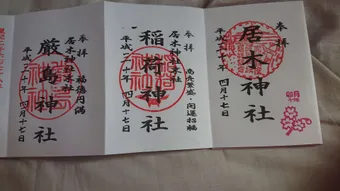 奉拝
居木神社
平成三十年四月十七日
奉拝
居木神社末社
商売繁盛・開運招福
稲荷神社
平成三十年四月十七日
奉拝
居木神社末社
福徳円満
厳島神社
平成三十年四月十七日